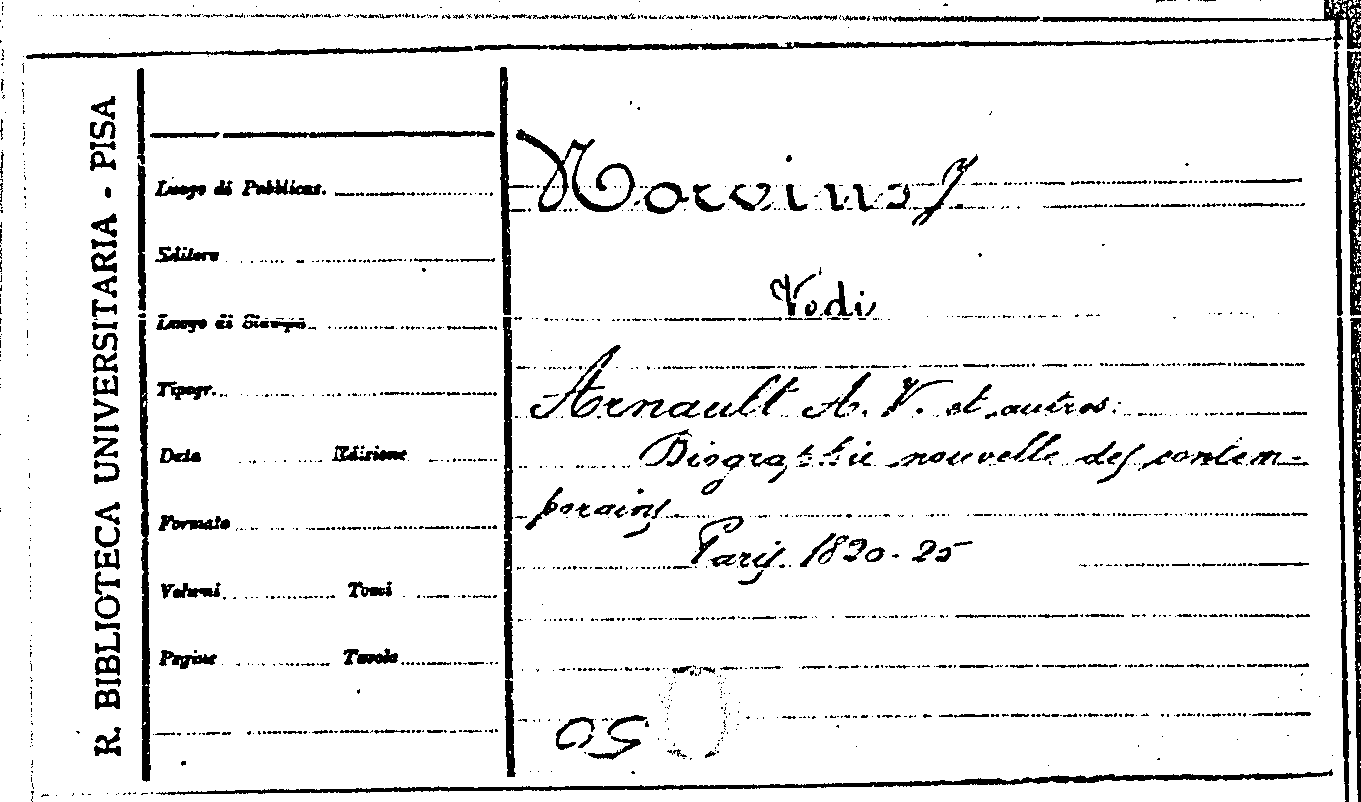 R. BIBLIOTECA UNIVERSITARIA - PISA
Luogo di Pubblicaz.
Editore
Luogo di Stampa
Tipogr.
Data Edizione
Formato
Volumi Tomi
Pagine Tavole
Norvins J.
Vedi
Arnault A. V. et autres.
Biographie nouvelle des contem-
porains
Paris. 1820-25